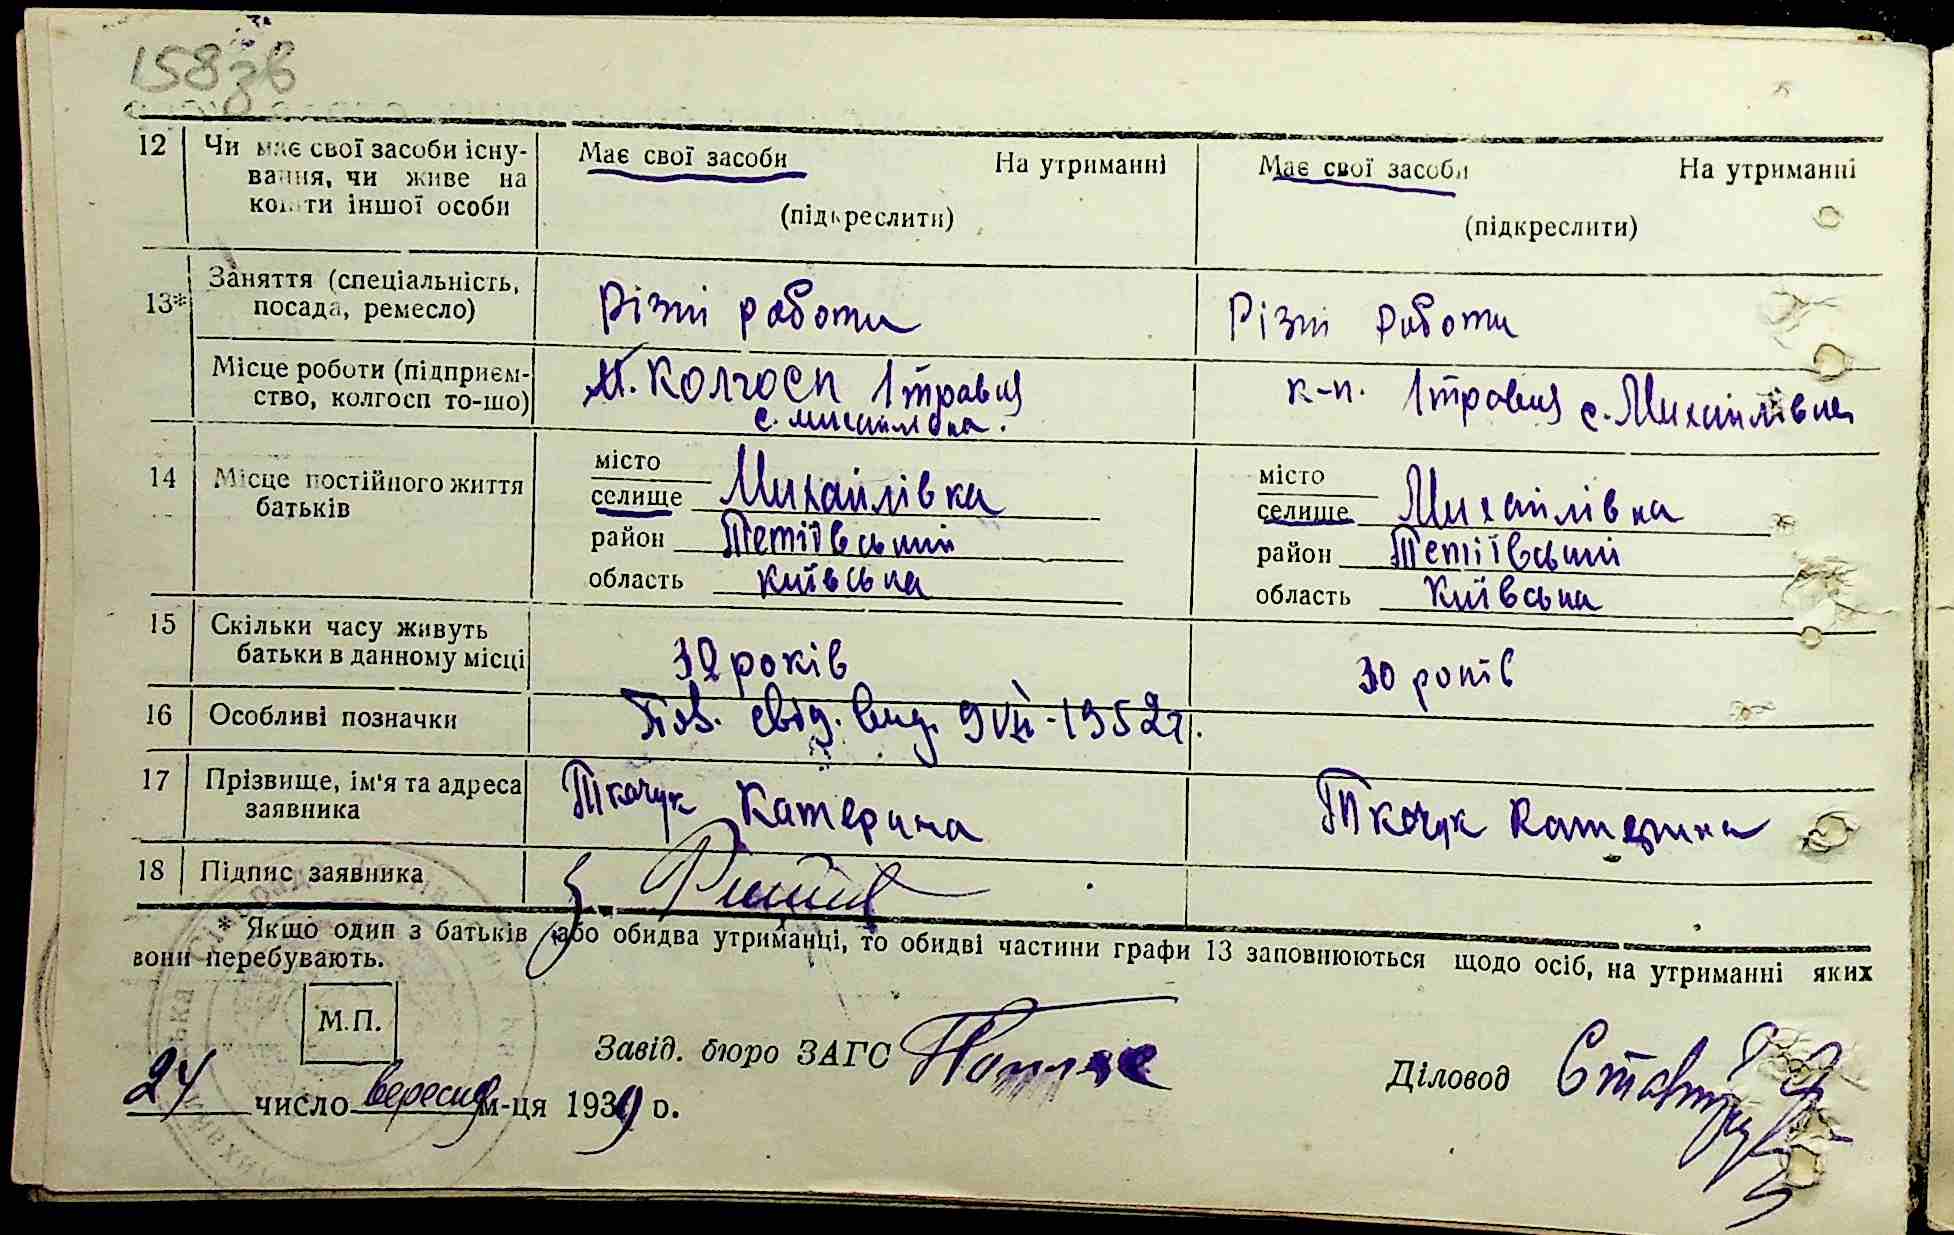 158зв
12 Чи має свої засоби існу- Має свої засоби На утриманні Має свої засоби На утриманні
вання, чи живе на
кошти іншої особи (підкреслити) (підкреслити)
13* Заняття (спеціальність, Різні роботи Різні роботи
посада, ремесло)
Місце роботи (підприєм- Колгосп 1 травня к-п. 1 травня с. Михайлівка
ство, колгосп то-що) с. Михайлівка.
14 Місце постійного життя місто місто
батьків селище Михайлівка селище Михайлівка
район Тетіївський район Тетіївський
область Київська область Київська
15 Скільки часу живуть 30 років 30 років
батьки в данному місці
16 Особливі позначки Пов. свід. вид. 9 VII-1952 г.
17 Прізвище, ім'я та адреса Ткачук Катерина Ткачук Катерина
заявника
18 Підпис заявника
* Якщо один з батьків або обидва утриманці, то обидві частини графи 13 заповнюються щодо осіб, на утриманні яких
вони перебувають.
М.П.
Завід. бюро ЗАГС Діловод
24 число вересня м-ця 1939 р.